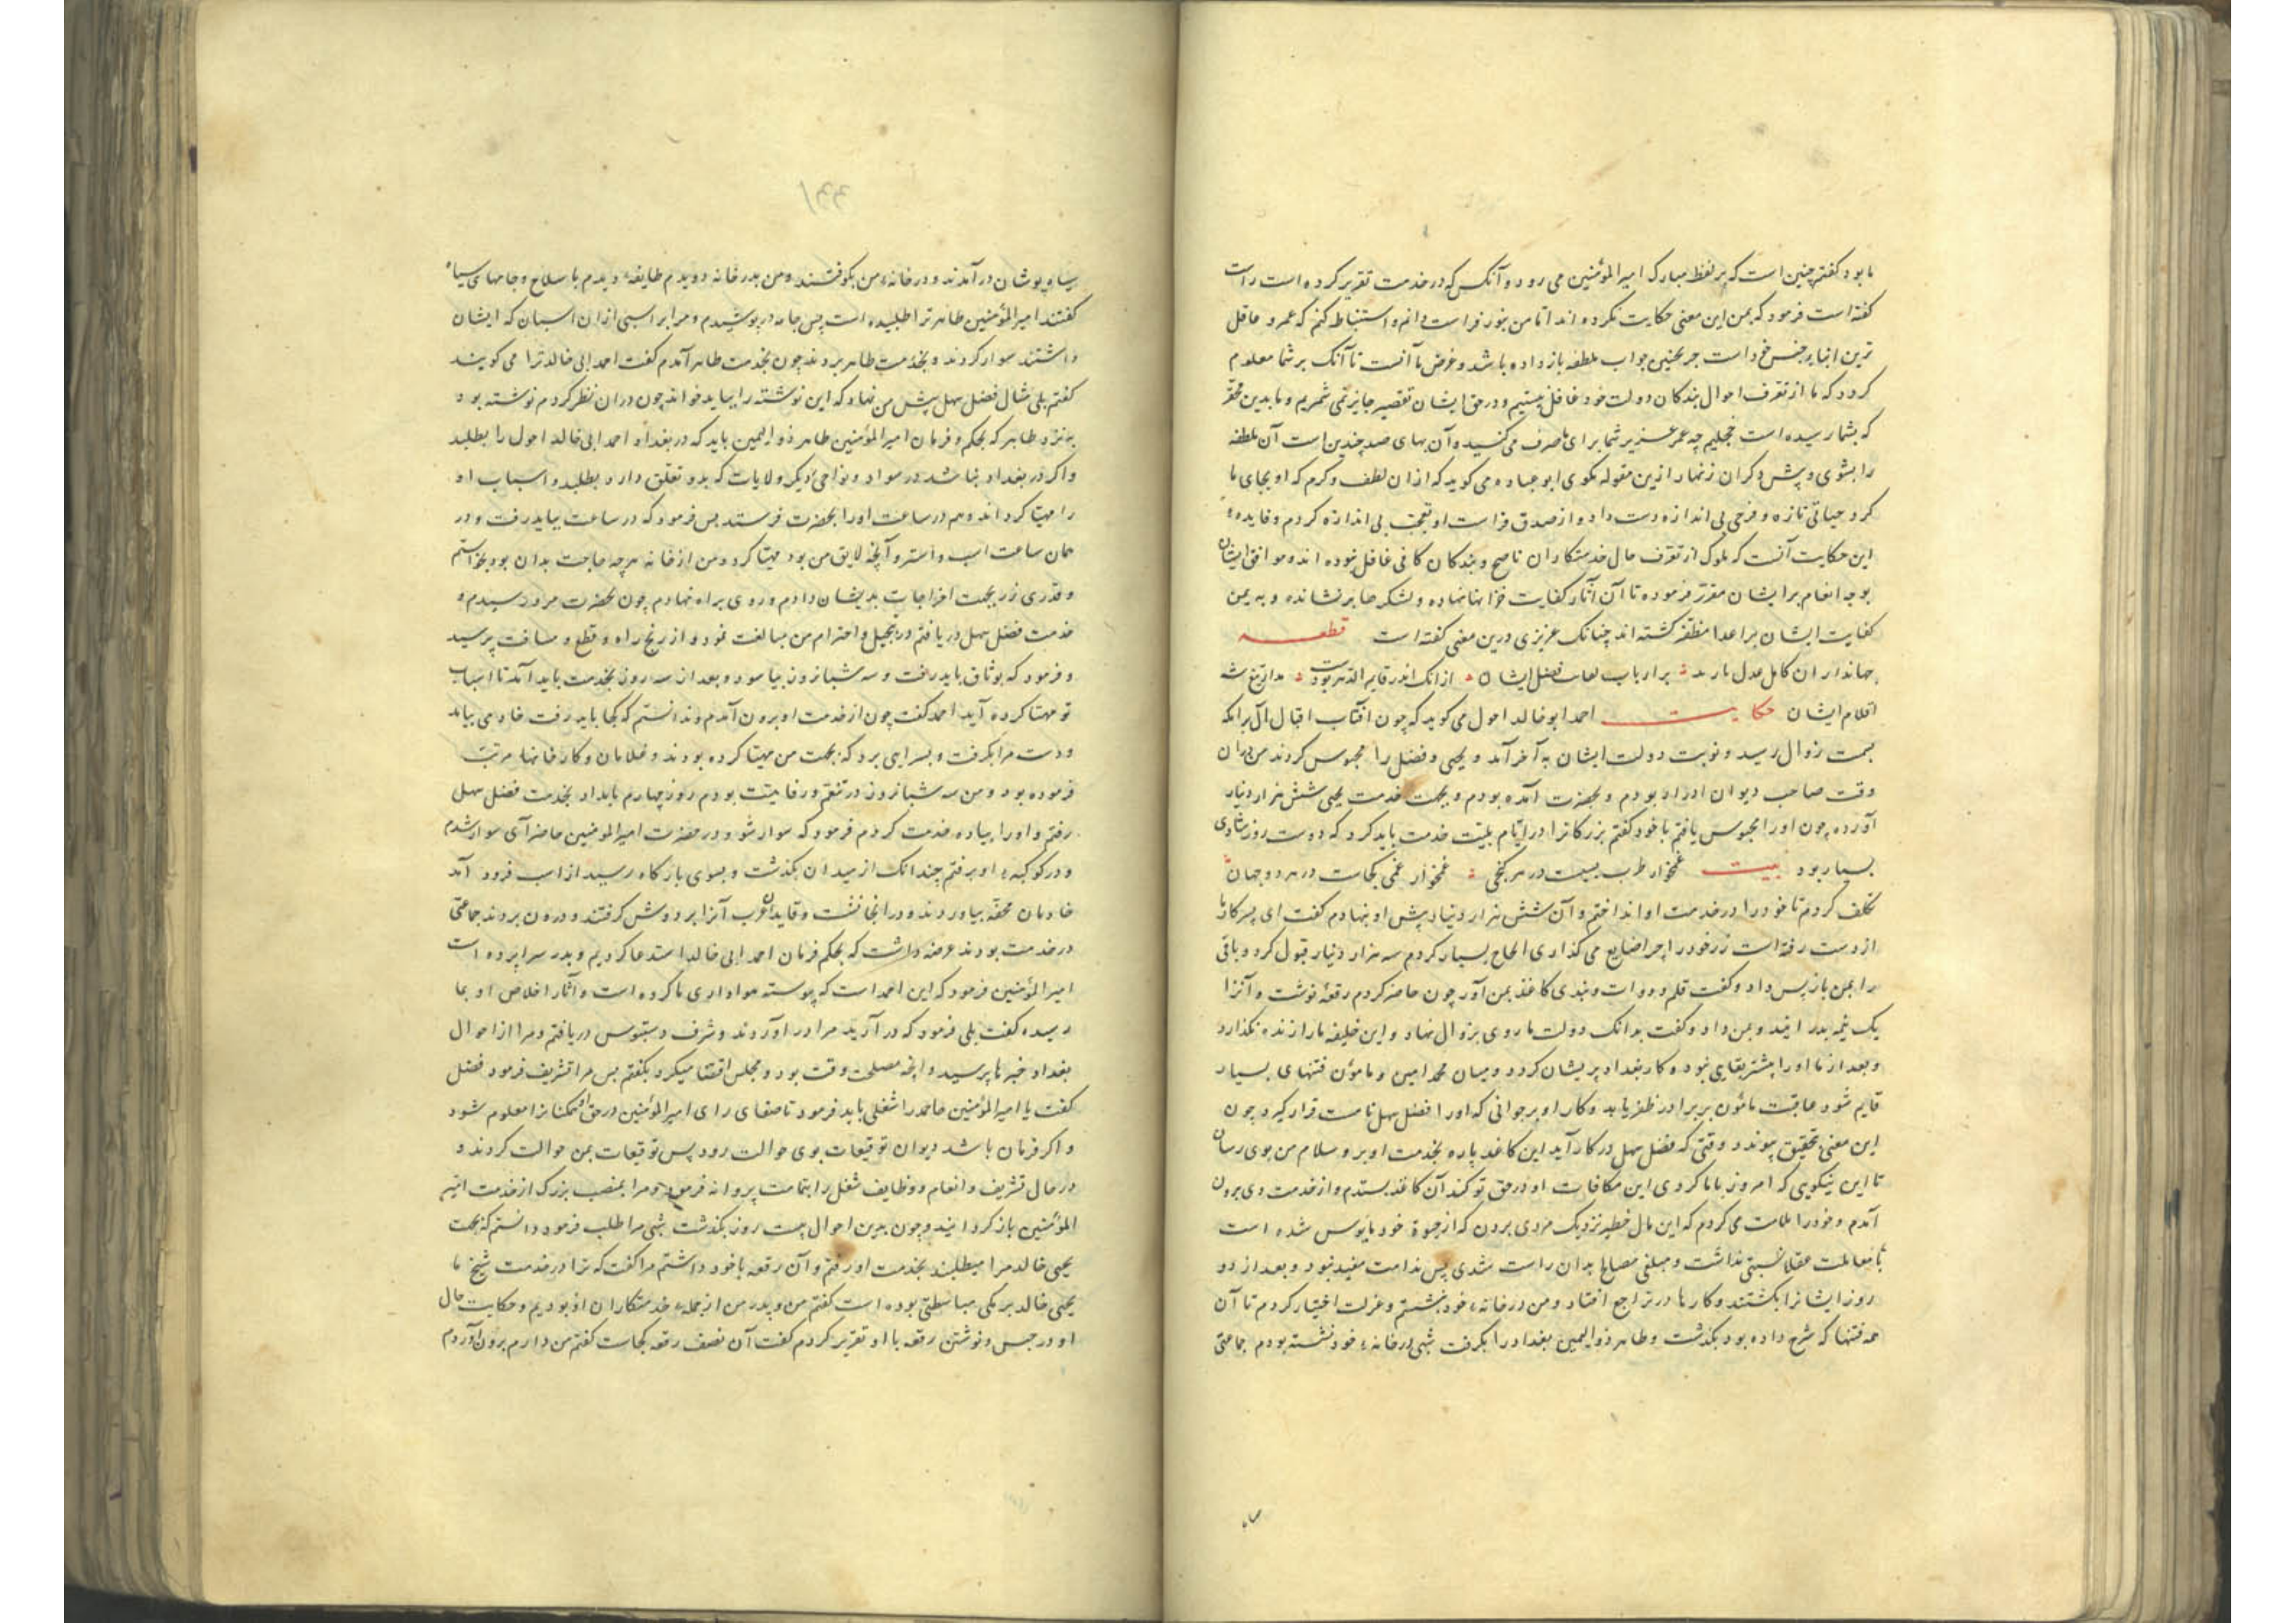 ما بود گفتم چنین است که بر لفظ مبارک امیر المؤمنین می رود و آنکس که در خدمت تقریر کرده است راست
گفته است فرمود که بمن این معنی حکایت نکرده اند اما من بنور فراست دانم و استنباط کنم که عمرو عاقل
ترین ابنای جنس خود است جز بچنین جواب ملطفه باز نداده باشد و غرض ما آنست تا آنک بر شما معلوم
گردد که ما از تعرف احوال بندکان دولت خود غافل نیستیم و در حق ایشان تقصیر جایز نمی شمریم و ما بدین محقر
که بشما رسیده است خجلیم چه عمر عزیز شما برای ما صرف می کنید و آن بهای صد چندین است آن ملطفه
را بشوی و پیش دکران زنهار ازین مقوله نکوی ابو عباده می کوید که ازان لطف و کرم که او بجای ما
کرد حیاتی تازه و فرحی بی اندازه دست داد و از صدق فراست او تعجب بی اندازه کردم و فایدهٔ
این حکایت آنست که ملوک از تعرف حال خدمتکاران ناصح و بندکان کافی غافل نبوده اند و موافق ایشان
بوجه انعام بر ایشان مقرر فرموده تا آن آثار کفایت خزاینها نهاده و لشکرها بر نشانده و به یمن
کفایت ایشان بر اعدا مظفر کشته اند چنانک عزیزی درین معنی کفته است قطعه
جهانداران کامل عدل بر ارباب فضل ایشان از انک اندر قایم
اقلام ایشان حکایت احمد ابو خالد احول می کوید که چون آفتاب اقبال آل برامکه
بسمت زوال رسید و نوبت دولت ایشان به آخر آمد و یحیی و فضل را محبوس کردند من دران
وقت صاحب دیوان ادرار بودم و بحضرت آمده بودم و بجهت خدمت یحیی شش هزار دینار
آورده چون اورا محبوس یافتم با خود کفتم بزرکانرا در ایام بلیّت خدمت باید کرد که دوست روز شادی
بسیار بود بیت غمخوار طرب بسیست در هر کنجی غمخوار غمی کجاست در هر دو جهان
تکلف کردم تا خود را در خدمت او انداختم و آن شش هزار دینار پیش او بنهادم کفت ای پسر کار ما
از دست رفته است زر خود را چرا ضایع می کذاری الحاح بسیار کردم سه هزار دینار قبول کرد و باقی
را بمن باز پس داد و کفت قلم و دوات و بندی کاغذ بمن آور چون حاضر کردم رقعهٔ نوشت و آنرا
یک نیمه بدرانید و بمن داد و کفت بدانک دولت ما روی بزوال نهاد و این خلیفه ما را زنده نکذارد
و بعد از ما او را بیشتر بقایی نبود و کار بغداد پریشان کردد و میان محمد امین و مامون فتنهای بسیار
قایم شود عاقبت مامون بر برادر ظفر یابد و کار او بر جوانی که او را فضل سهل نامست قرار کیرد چون
این معنی بتحقیق پیوندد وقتی که فضل سهل در کار آید این کاغذ پاره بخدمت او بر و سلام من بوی رسان
تا این نیکویی که امروز با ما کردی این مکافات او در حق تو کند آن کاغذ بستدم و از خدمت وی برون
آمدم و خود را ملامت می کردم که این مال خطیر نزدیک مردی بردن که از حیوة خود مایوس شده است
با معاملت عقلا نسبتی نداشت و مبلغی مصالح ما بدان راست شدی پس ندامت مفید نبود و بعد از دو
روز ایشانرا بکشتند و کار ما در تراجع افتاد و من در خانهٔ خود بنشستم و عزلت اختیار کردم تا آن
همه فتنها که شرح داده بود بکذشت و طاهر ذو الیمین بغداد را بکرفت شبی در خانهٔ خود نشسته بودم جماعتی
سیاه پوشان در آمدند و در خانهٔ من بکوفتند و من بدر خانه دویدم طایفهٔ دیدم با سلاح و جامهای سیاه
کفتند امیر المؤمنین طاهر ترا طلبیده است پس جامه در پوشیدم و مرا بر اسبی ازان اسبان که ایشان
داشتند سوار کردند و بخدمت طاهر بردند چون بخدمت طاهر آمدم کفت احمد ابی خالد ترا می کویند
کفتم بلی مثال فضل سهل پیش من نهاد که این نوشته را بباید خواند چون دران نظر کردم نوشته بود
به نزد طاهر که بحکم و فرمان امیر المؤمنین طاهر ذو الیمین باید که در بغداد احمد ابی خالد احول را بطلبد
و اکر در بغداد نباشد در سواد و نواحی دیکر ولایات که بدو تعلق دارد بطلبد و اسباب او
را مهیا کرداند و هم در ساعت اورا بحضرت فرستد پس فرمود که در ساعت بباید رفت و در
همان ساعت اسب و استر و آنچه لایق من بود مهیا کرد و من از خانه هر چه حاجت بدان بود بخواستم
و قدری زر بجهت اخراجات بدیشان دادم و روی براه نهادم چون بحضرت مرو رسیدم و
خدمت فضل سهل دریافتم در تبجیل و احترام من مبالغت نمود و از رنج راه و قطع مسافت پرسید
و فرمود که بوثاق باید رفت و سه شبانروز بیاسود و بعد از سه روز بخدمت باید آمد تا اسباب
تو مهیا کرده آید احمد کفت چون از خدمت او برون آمدم و ندانستم که کجا باید رفت خادمی بیامد
و دست مرا بکرفت و بسرایی برد که بجهت من مهیا کرده بودند و غلامان و کارخانها مرتب
فرموده بود و من سه شبانروز در تنعم و رفاهیت بودم روز چهارم بامداد بخدمت فضل سهل
رفتم و او را پیاده خدمت کردم فرمود که سوار شو و در حضرت امیر المؤمنین حاضر آی سوار شدم
و در کوکبهٔ او برفتم چندانک از میدان بکذشت و بسوی بارکاه رسید از اسب فرود آمد
خادمان محفه بیاوردند و در انجا نشست و قایدان عرب آنرا بر دوش کرفتند و درون بردند جماعتی
در خدمت بودند عرضه داشت که بحکم فرمان احمد ابی خالد را استدعا کردیم و بدر سراپرده است
امیر المؤمنین فرمود که این احمد است که پیوسته هواداری ما کرده است و آثار اخلاص او بما
رسیده کفت بلی فرمود که در آرید مرا در آوردند و شرف دستبوس دریافتم و مرا از احوال
بغداد خبر ها پرسید و انچه مصلحت وقت بود و مجلس اقتضا میکرد بکفتم پس مرا تشریف فرمود فضل
کفت یا امیر المؤمنین احمد را شغلی باید فرمود تا صفای رای امیر المؤمنین در حق او همکنانرا معلوم شود
و اکر فرمان باشد دیوان توقیعات بوی حوالت رود پس توقیعات بمن حوالت کردند و
در حال تشریف و انعام و وظایف شغل را بتمامت پروانه فرمود و مرا بمنصب بزرک از خدمت امیر
المؤمنین باز کردانیدند و چون بدین احوال بیست روز بکذشت شبی مرا طلب فرمود دانستم که بجهت
یحیی خالد مرا میطلبند بخدمت او رفتم و آن رقعه با خود داشتم مرا کفت که ترا در خدمت شیخ ما
یحیی خالد برمکی مباسطتی بوده است کفتم من و پدر من از جملهٔ خدمتکاران او بودیم و حکایت حال
او در حبس و نوشتن رقعه با او تقریر کردم کفت آن نصف رقعه کجاست کفتم من دارم برون آوردم